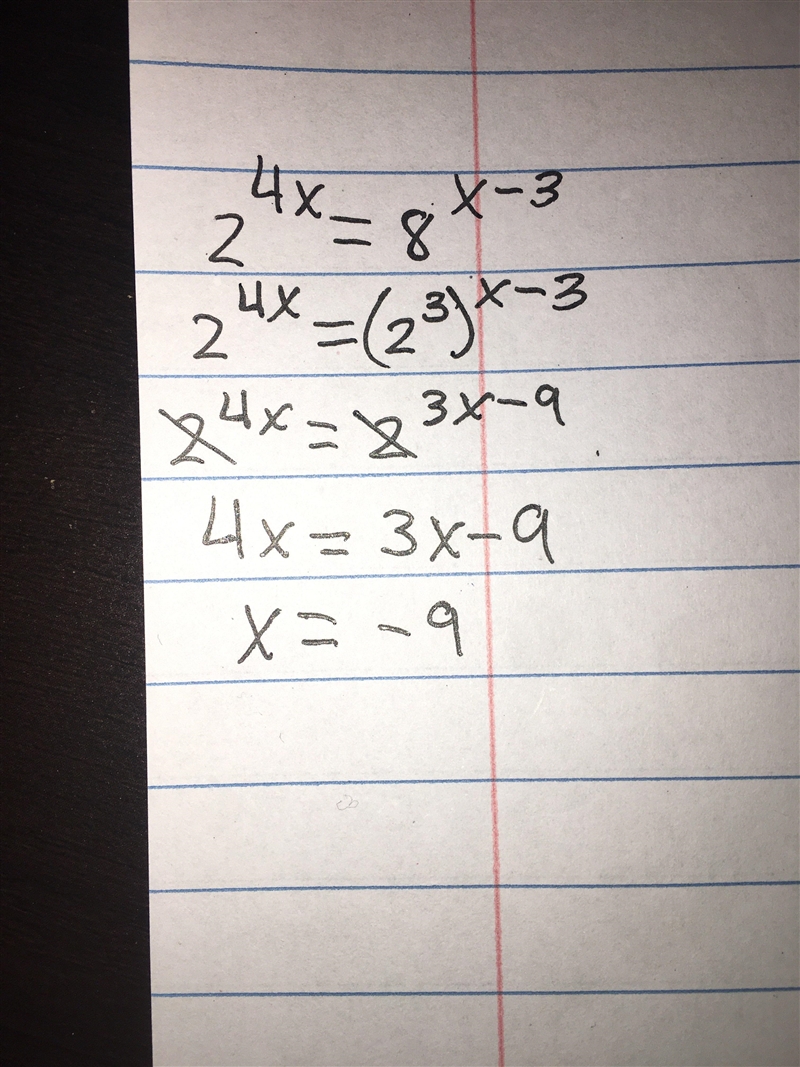 2^{4x} = 8^{x-3}
2^{4x} = (2^3)^{x-3}
2^{4x} = 2^{3x-9}
4x = 3x-9
x = -9